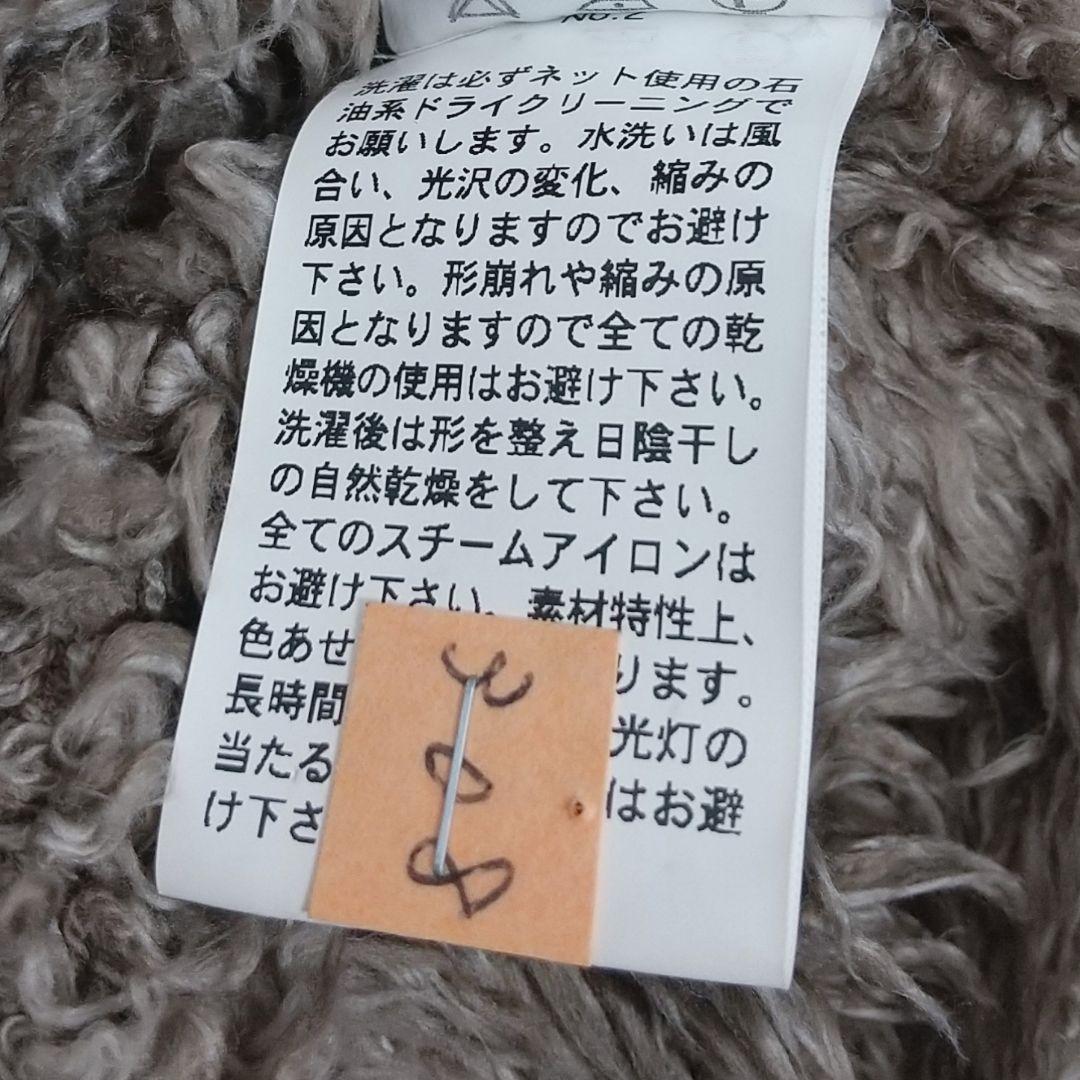 No.2
洗濯は必ずネット使用の石
油系ドライクリーニングで
お願いします。水洗いは風
合い、光沢の変化、縮みの
原因となりますのでお避け
下さい。形崩れや縮みの原
因となりますので全ての乾
燥機の使用はお避け下さい。
洗濯後は形を整え日陰干し
の自然乾燥をして下さい。
全てのスチームアイロンは
お避け下さい。素材特性上、
色あせ ります。
長時間 光灯の
当たる はお避
け下さ